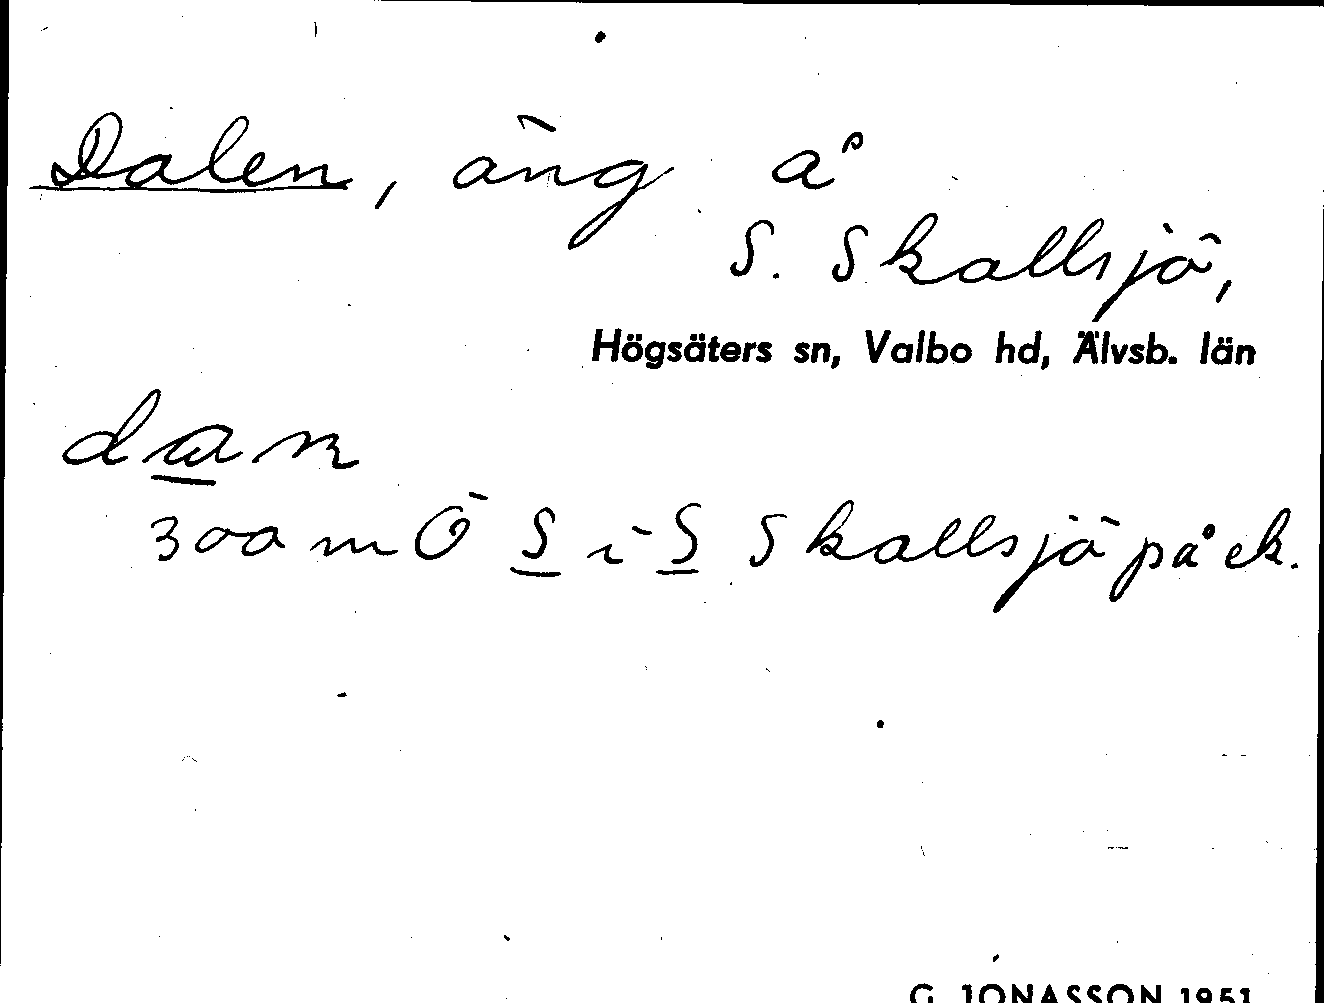 Dalen, äng å
S. Skallsjö,
Högsäters sn, Valbo hd, Älvsb. län
dan
300 m Ö S i S Skallsjö på ek.
G. JONASSON 1951